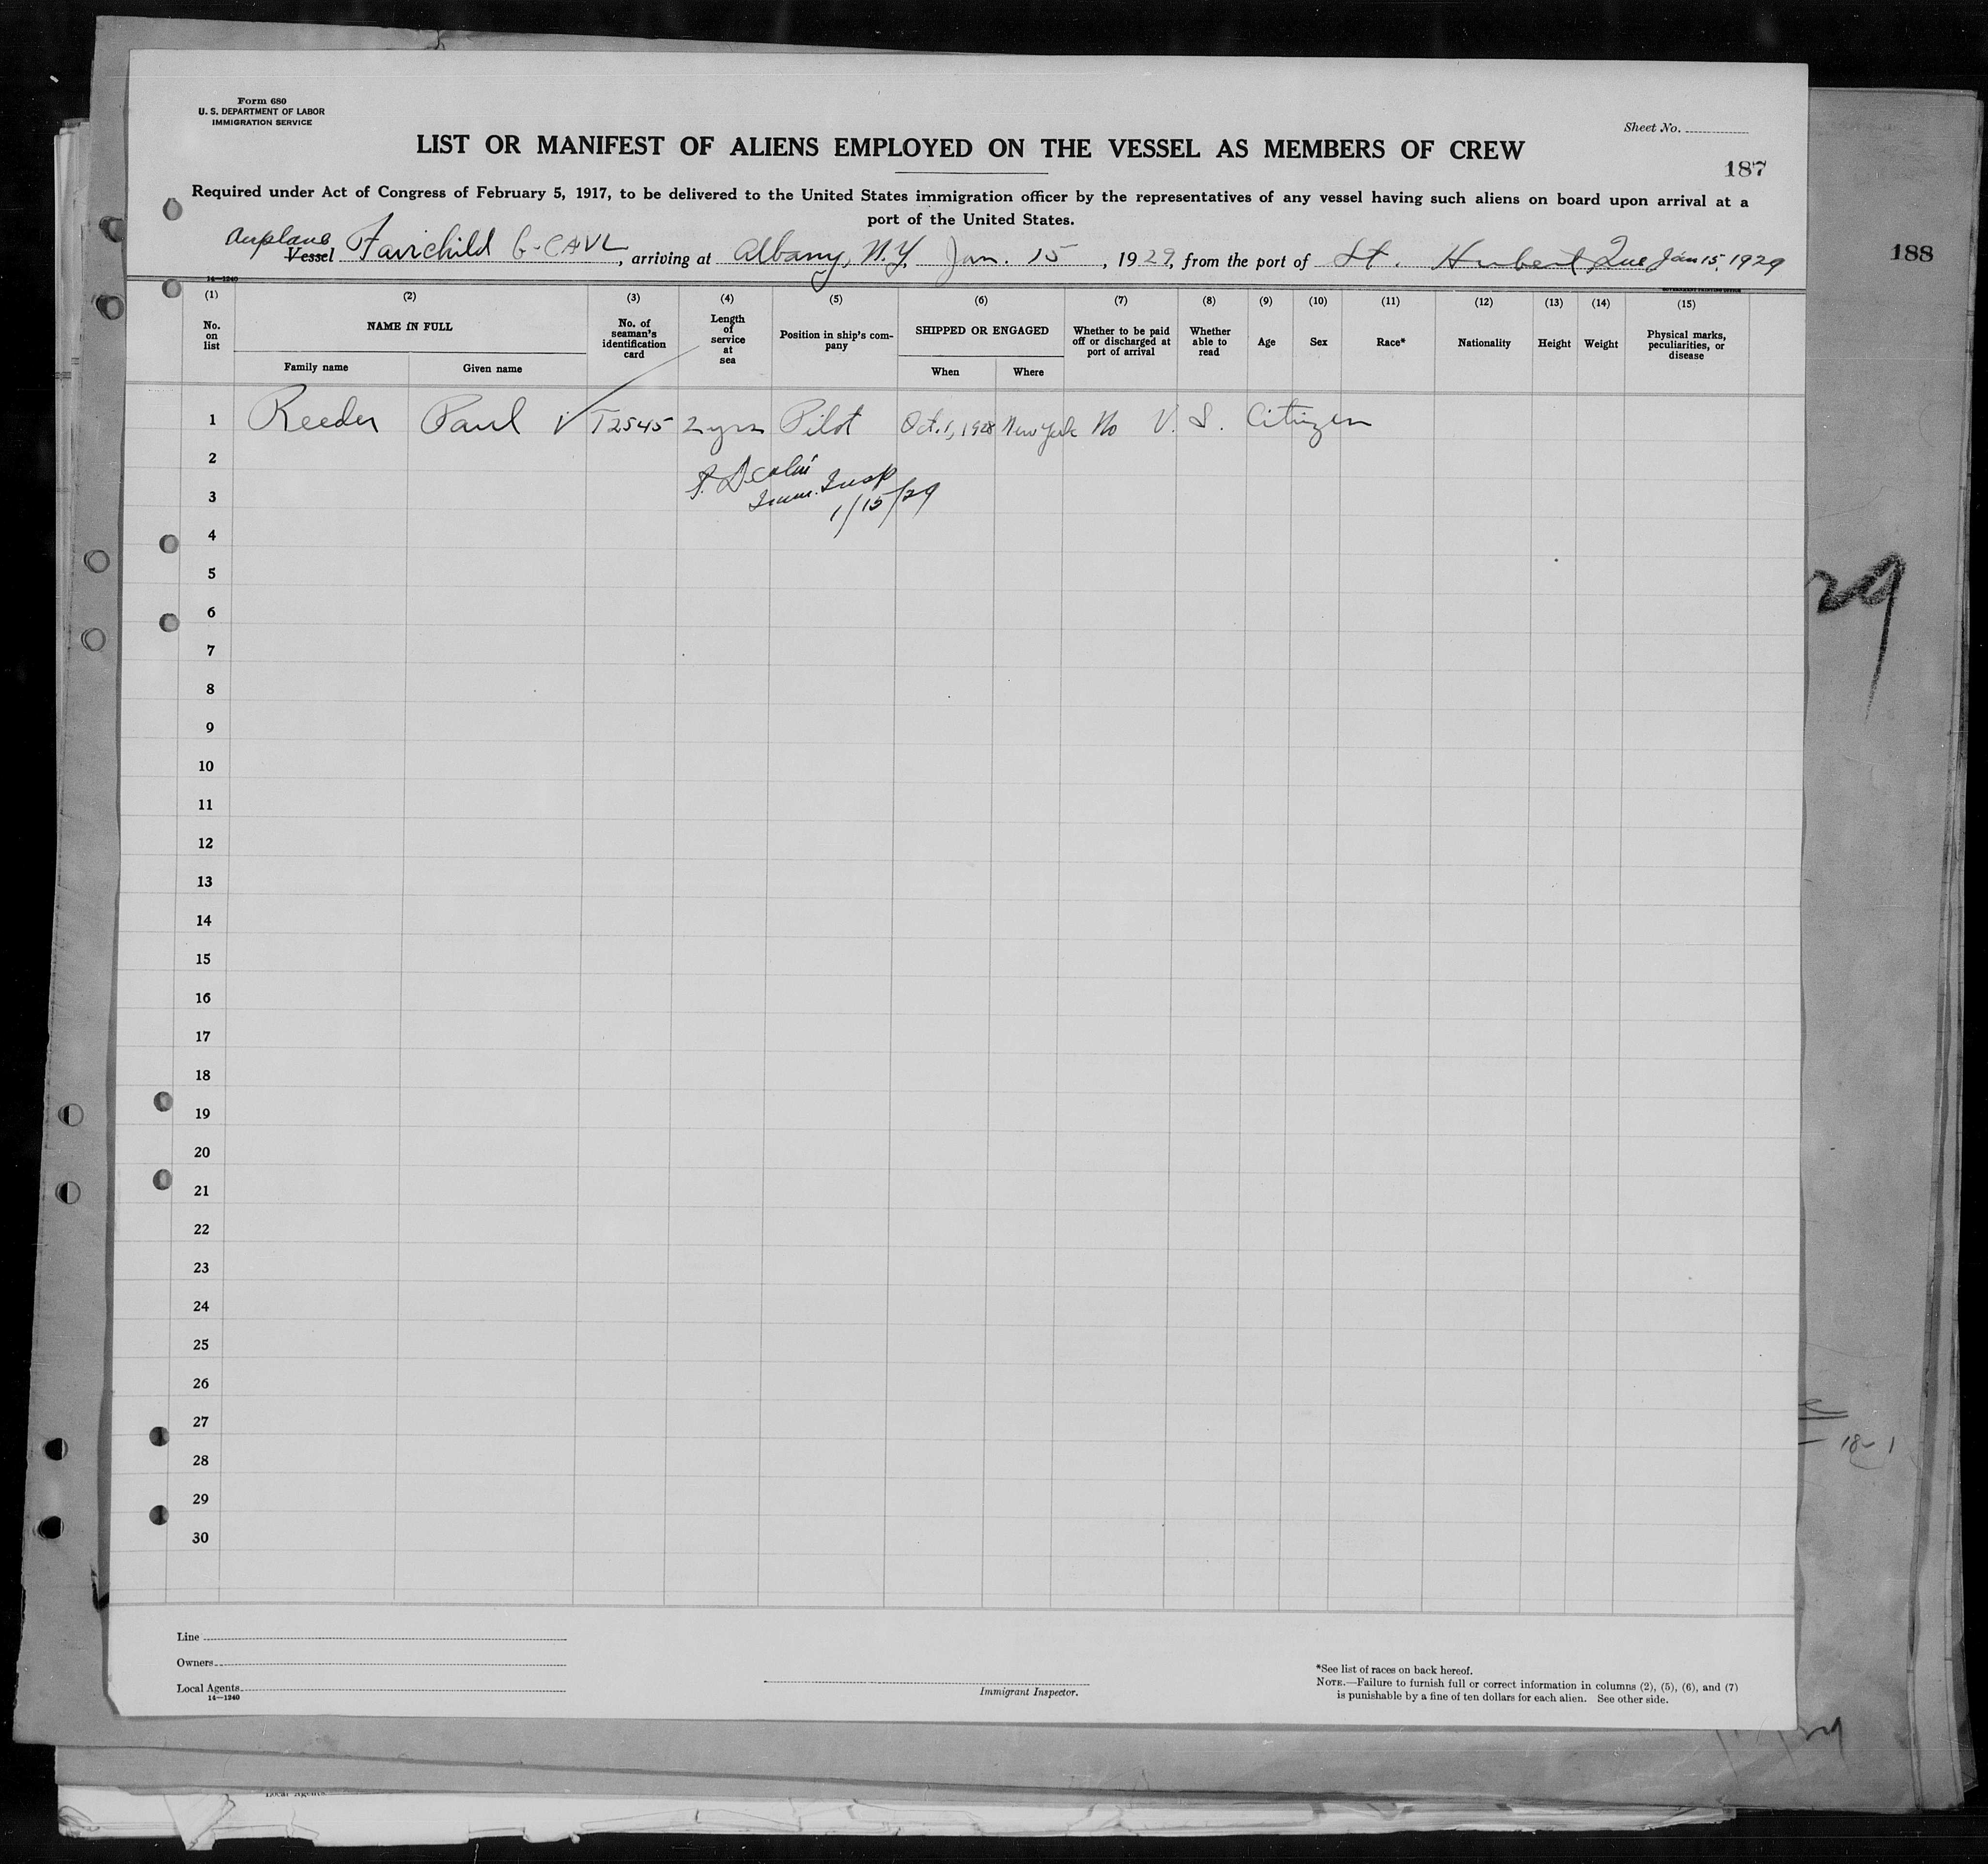 Form 680
U. S. DEPARTMENT OF LABOR
IMMIGRATION SERVICE
Sheet No.
LIST OR MANIFEST OF ALIENS EMPLOYED ON THE VESSEL AS MEMBERS OF CREW
187
Required under Act of Congress of February 5, 1917, to be delivered to the United States immigration officer by the representatives of any vessel having such aliens on board upon arrival at a
port of the United States.
Airplane
Vessel Fairchild G-CAVL, arriving at Albany, N.Y. Jan. 15, 1929, from the port of St. Hubert Que Jan 15, 1929
188
14—1240
GOVERNMENT PRINTING OFFICE
(1) (2) (3) (4) (5) (6) (7) (8) (9) (10) (11) (12) (13) (14) (15)
No. on list
NAME IN FULL
Family name Given name
No. of seaman's identification card
Length of service at sea
Position in ship's company
SHIPPED OR ENGAGED
When Where
Whether to be paid off or discharged at port of arrival
Whether able to read
Age
Sex
Race*
Nationality
Height
Weight
Physical marks, peculiarities, or disease
1 Reeder Paul V T2545 2 yrs Pilot Oct. 1, 1928 New York No U. S. Citizen
2
Imm. Insp
3
1/15/29
4
5
6
7
8
9
10
11
12
13
14
15
16
17
18
19
20
21
22
23
24
25
26
27
28
29
30
29
18-1
Line
Owners
Local Agents
14—1240
Immigrant Inspector.
*See list of races on back hereof.
NOTE.—Failure to furnish full or correct information in columns (2), (5), (6), and (7)
is punishable by a fine of ten dollars for each alien. See other side.
Local Agents